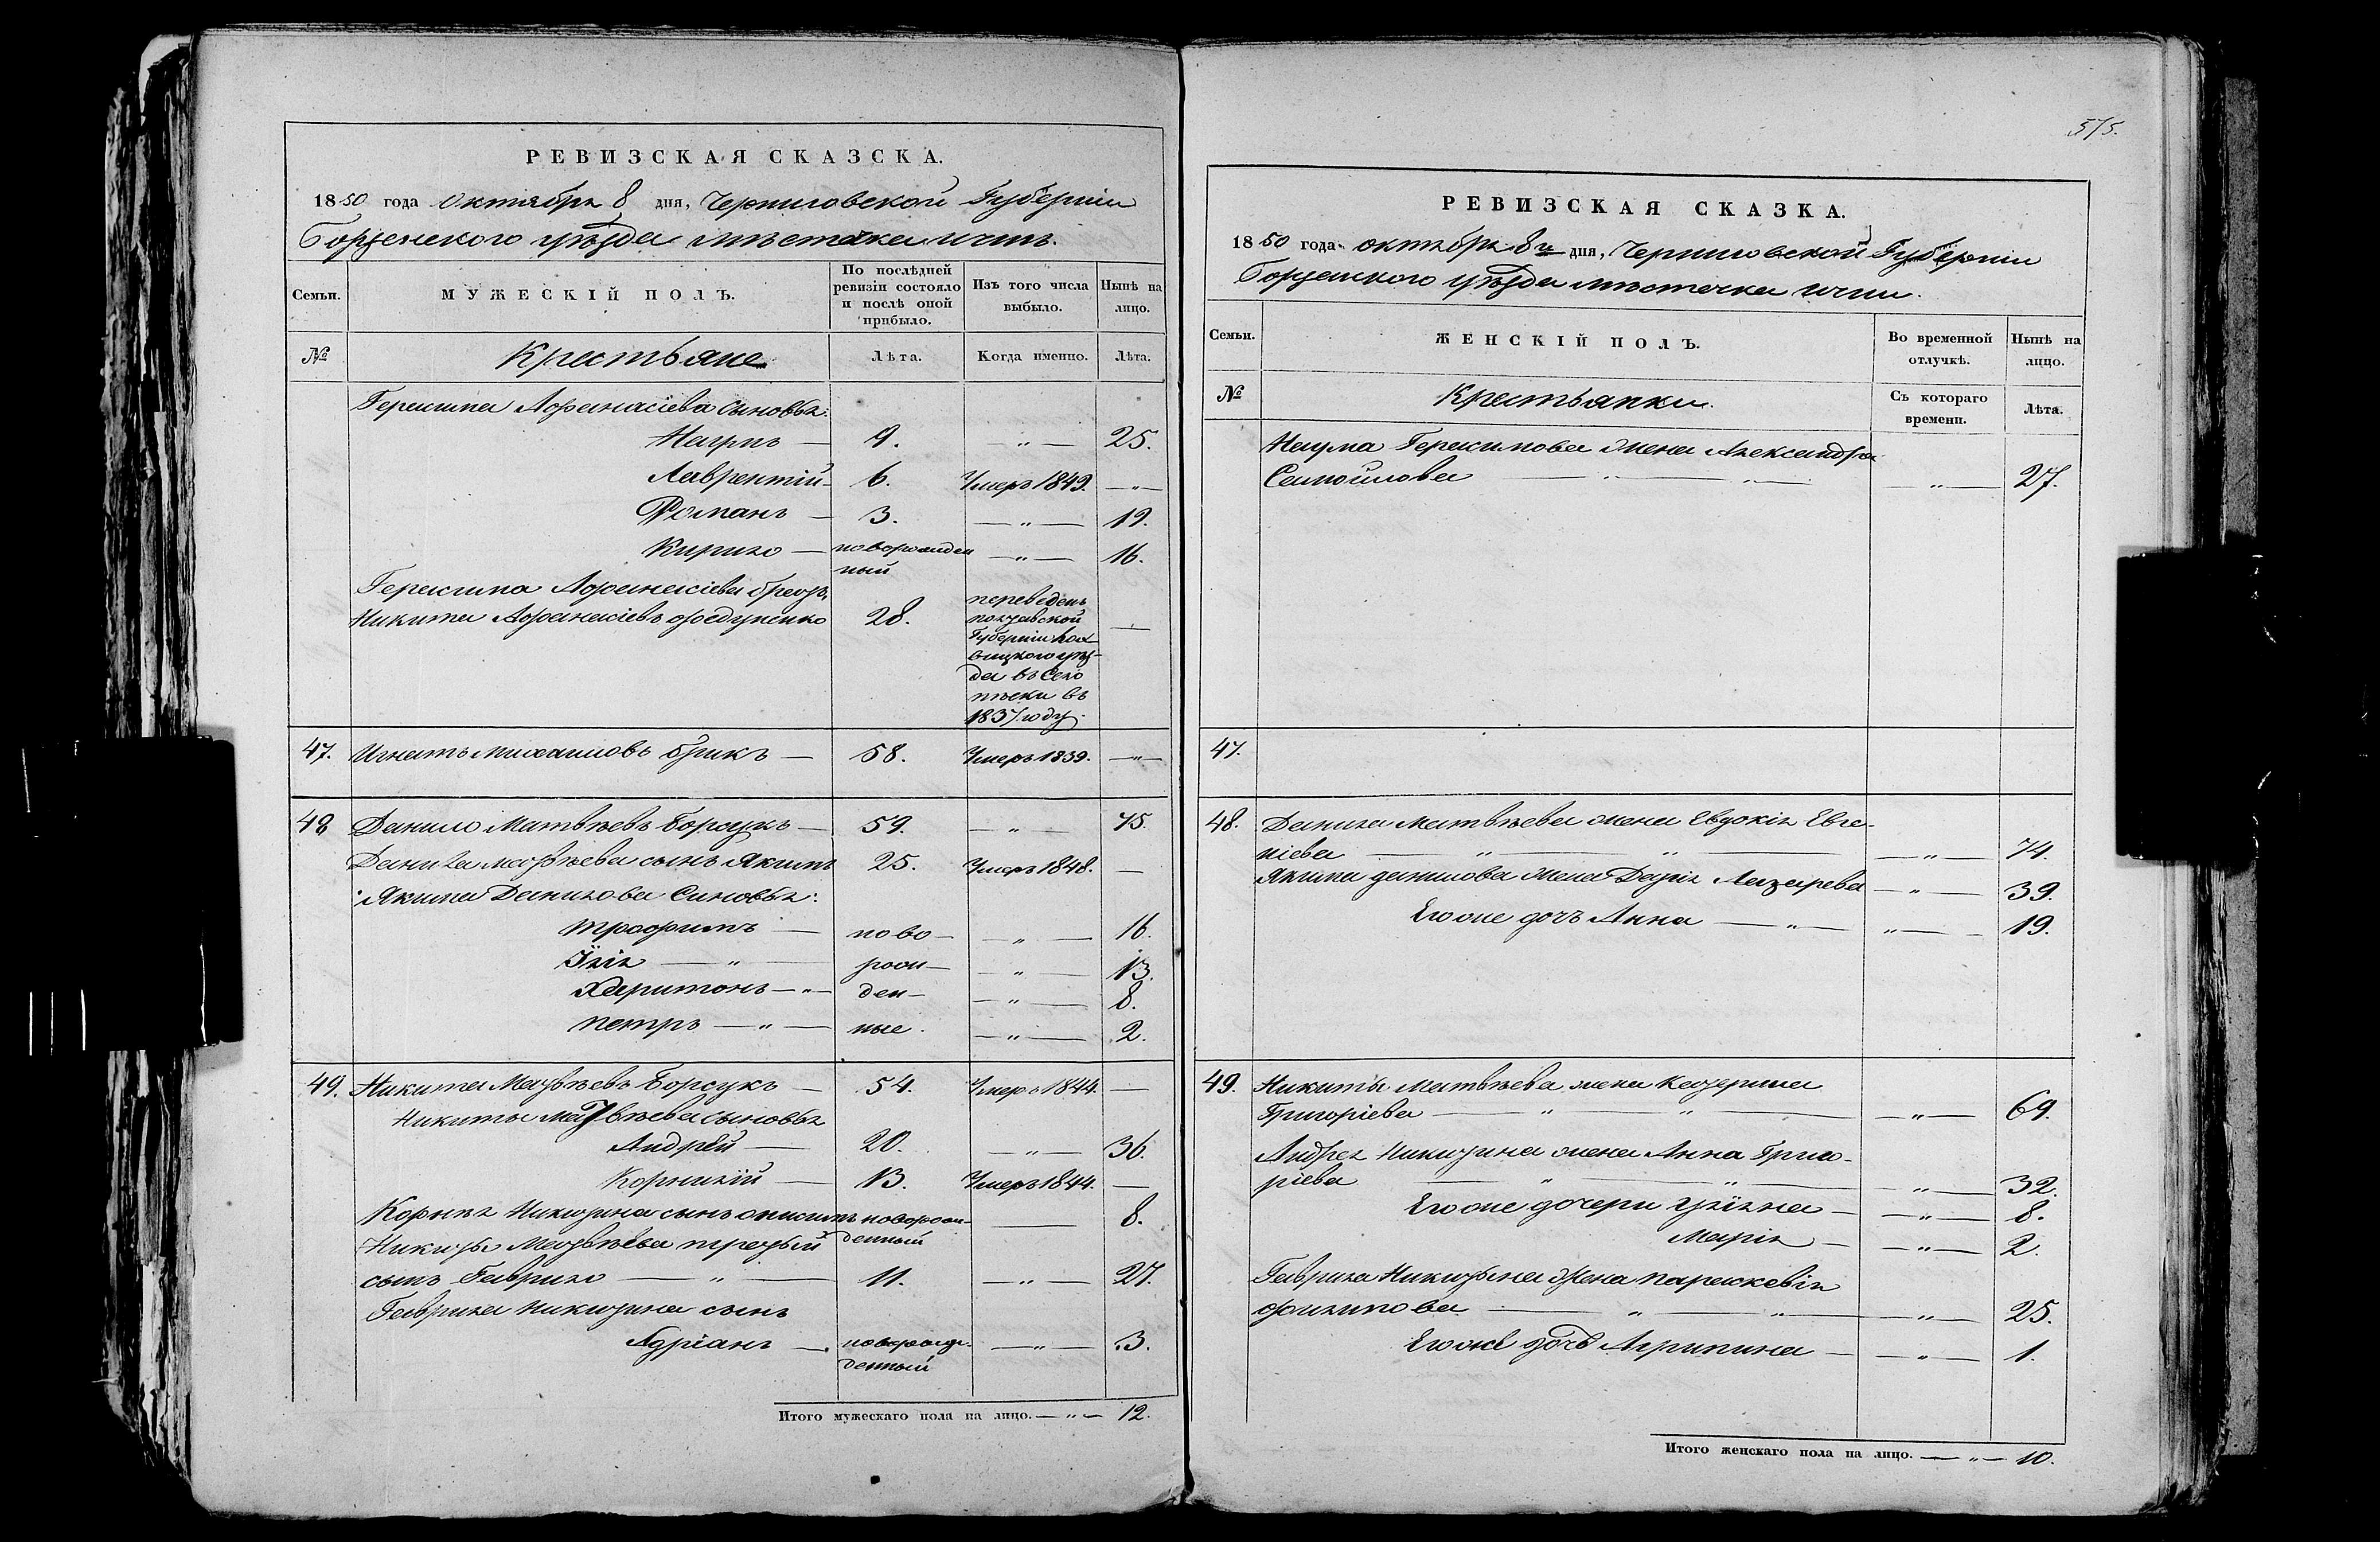 РЕВИЗСКАЯ СКАЗСКА.
1850 года Октября 8 дня, Черниговской Губерніи
Борзенского уѣзда мѣстечка Ични.
Семьи. МУЖЕСКІЙ ПОЛЪ. По послѣдней ревизіи состояло и послѣ оной прибыло. Изъ того числа выбыло. Нынѣ на лицо.
№ Крестьяне Лѣта. Когда именно. Лѣта.
Герасима Афанасіева сыновья:
Наумъ — 9. — „ — 25.
Лаврентій — 6. Умеръ 1849. — „ —
Романъ — 3. — „ — 19.
Кирило — новорожден
ный — „ — 16.
Герасима Афанасіева братъ
Никита Афанасіевъ Федученко 28. —
переведенъ
полтавской
Губерніи
да въ Село
въ
1837 году.
47. Игнатъ Михаиловъ — 58. Умеръ 1839. — „ —
48 Данило Матвѣевъ Борсукъ — 59. — „ — 75.
Данила Матвѣева сынъ Якимъ 25. Умеръ 1848. —
Якима Данилова Сыновья:
Трофимъ — ново — — „ — 16.
Ілія — „ — рож — — „ — 13.
Харитонъ — „ — ден — — „ — 8.
петръ — „ — ные. — „ — 2.
49. Никита Матвѣевъ Борсукъ — 54. Умеръ 1844. —
Никиты Матвѣева сыновья
Андрей — 20. — „ — 36.
Корнилій — 13. Умеръ 1844. —
Никитина сынъ новорож-
денный — 8.
Никиты Матвѣева третый
сынъ Гаврило — „ — 11. — „ — 27.
Гаврила Никитина сынъ
Адріанъ — новорож-
денный — „ — 3.
Итого мужескаго пола на лицо. — „ — 12.
575.
РЕВИЗСКАЯ СКАЗКА.
1850 года октября 8го дня, Черниговской Губерніи
Борзенского уѣзда мѣстечка Ични.
Семьи. ЖЕНСКІЙ ПОЛЪ. Во временной отлучкѣ. Нынѣ на лицо.
№ Крестьянки. Съ котораго времени. Лѣта.
Наума Герасимова жена Александра
Самойлова — „ — „ — — „ — 27.
47.
48. Данила Матвѣева жена Евдокія Евге-
ніева — „ — „ — — „ — 74.
Якима Данилова жена Дарія Лазарева — „ — 39.
Его же дочь Анна — „ — „ — 19.
49. Никиты Матвѣева жена Катерина
Григоріева — „ — „ — — „ — 69.
Андрея Никитина жена Анна Григо-
ріева — „ — „ — — „ — 32.
Его же дочери Уліяна — — „ — 8.
Марія — — „ — 2.
Гаврила Никитина жена параскевія
филипова — „ — „ — — „ — 25.
Его же дочь Агрипина — — „ — 1.
Итого женскаго пола на лицо. — „ — 10.